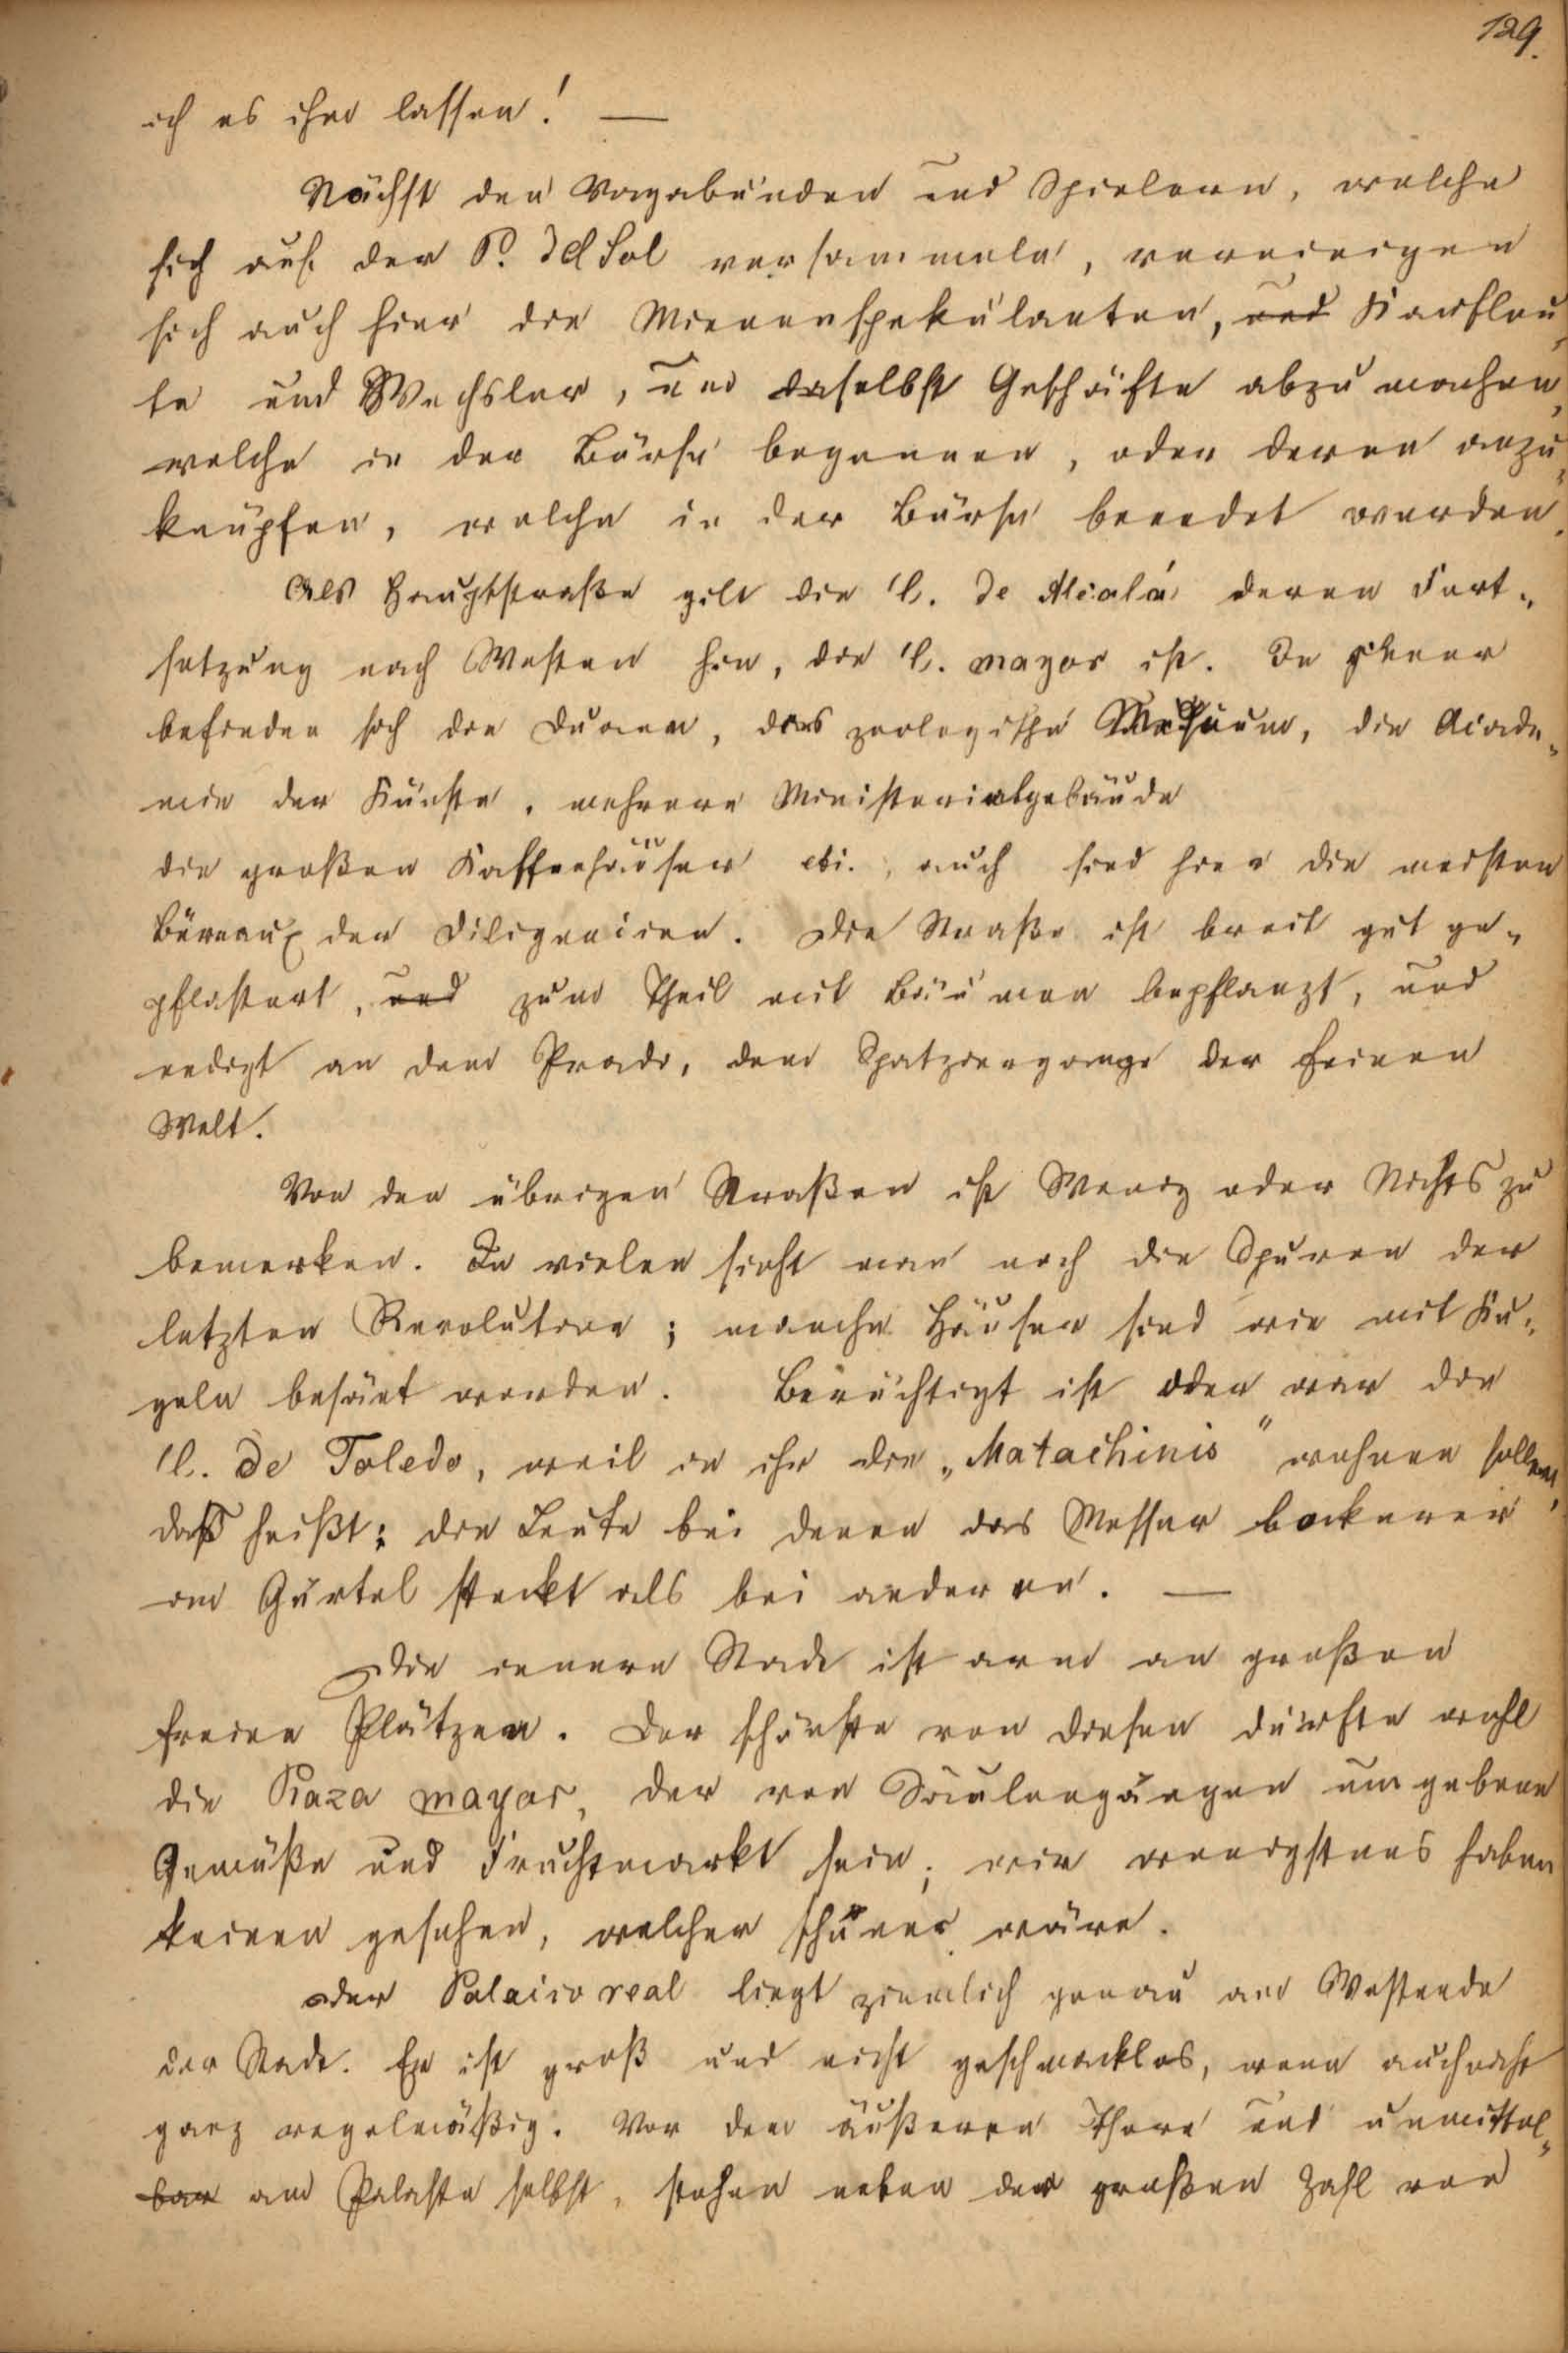 129.
ich es ihm lassen! —
Nächst den Vagabunden und Spielern, welche
sich auf der P. del Sol versammeln, vereinigen
sich auch hier die Minenspekulanten, und Kaufleu-
te und Wechsler, um daselbst Geschäfte abzumachen,
welche in der Börse begonnen, oder deren anzu-
knüpfen, welche in der Börse beendet werden.
Als Hauptstraße gilt die C. de Alcalá deren Fort-
setzung nach Westen hin, die C. mayor ist. In jener
befinden sich die Duanen, das zoologische Museum, die Acade-
mie der Künste, mehrere Ministerialgebäude
die großen Kaffeehäuser etc., auch sind hier die meisten
Büreaux der Diligencien. Die Straße ist breit gut ge-
pflastert, und zum Theil mit Bäumen bepflanzt, und
endigt an dem Prado, dem Spatziergange der feinen
Welt.
Von den übrigen Straßen ist Wenig oder Nichts zu
bemerken. In vielen sieht man noch die Spuren der
letzten Revolution; manche Häuser sind wie mit Ku-
geln besäet worden. Berüchtigt ist oder war die
C. de Toledo, weil in ihr die „Matachinis" wohnen sollen,
daß heißt: die Leute bei denen das Messer lockerer
am Gürtel steckt als bei anderen. —
Die innere Stadt ist arm an großen
freien Plätzen. Der schönste von diesen dürfte wohl
die Plaza mayor, der von Säulengängen umgebene
Gemüße und Fruchtmarkt sein; wir wenigstens haben
keinen gesehen, welcher schöner wäre.
Der Palacio real liegt ziemlich genau am Westende
der Stadt. Er ist groß und nicht geschmacklos, wenn auch nicht
ganz regelmäßig. Vor dem äußeren Thore und unmittel-
bar am Palaste selbst, stehen neben der großen Zahl von